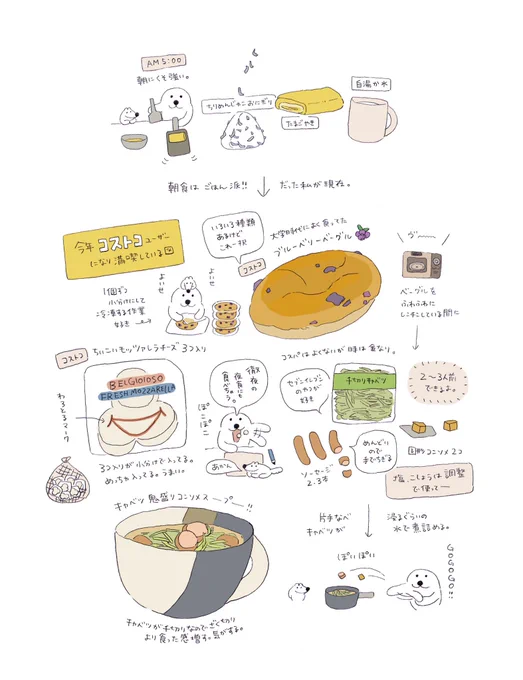 AM5:00
朝にくそ強い。
ちりめんじゃこおにぎり
たまごやき
白湯か水
朝食は ごはん派!! だった私が現在。
今年 コストコユーザー
になり満喫している
いろいろ種類
あるけど
これ一択
コストコ
大学時代によく食ってた
ブルーベリーベーグル
よいせ
よいせ
1個ずつ
小分けにして
冷凍する作業
好き
ベーグルを
ふわふわに
レンチンしている間に
コストコ
ちいこいモッツァレラチーズ 3コ入り
BELGIOIOSO
FRESH MOZZARELLA
わろとるマーク
3コ入りが小分けで入ってる。
めっちゃ入ってる。うまい。
徹夜の
夜食にも
食べちゃう。
ぽこ
ぽこ
あかん
コスパはよくないが味は重なり。
セブンイレブン
のやつが
好き
千切りキャベツ
2〜3人前
できるよ。
ソーセージ
2、3本
めんどい
ので
手でちぎる
固形コンソメ2コ
塩、こしょうは調整
で使って
キャベツ鬼盛りコンソメスープー!!
キャベツが千切りなのでざく切り
より食った感増す。気がする。
片手なべ
キャベツが
浸るぐらいの
水で煮詰める。
ぽいぽい
GOGOGO!!